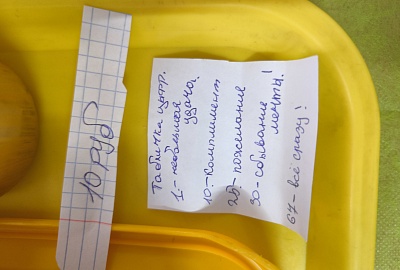 10 руб
Табличка цифр.
1 - небольшая
удача.
10 - комплимент
25 - пожелание
30 - сбывание
мечты!
67 - всё сразу!